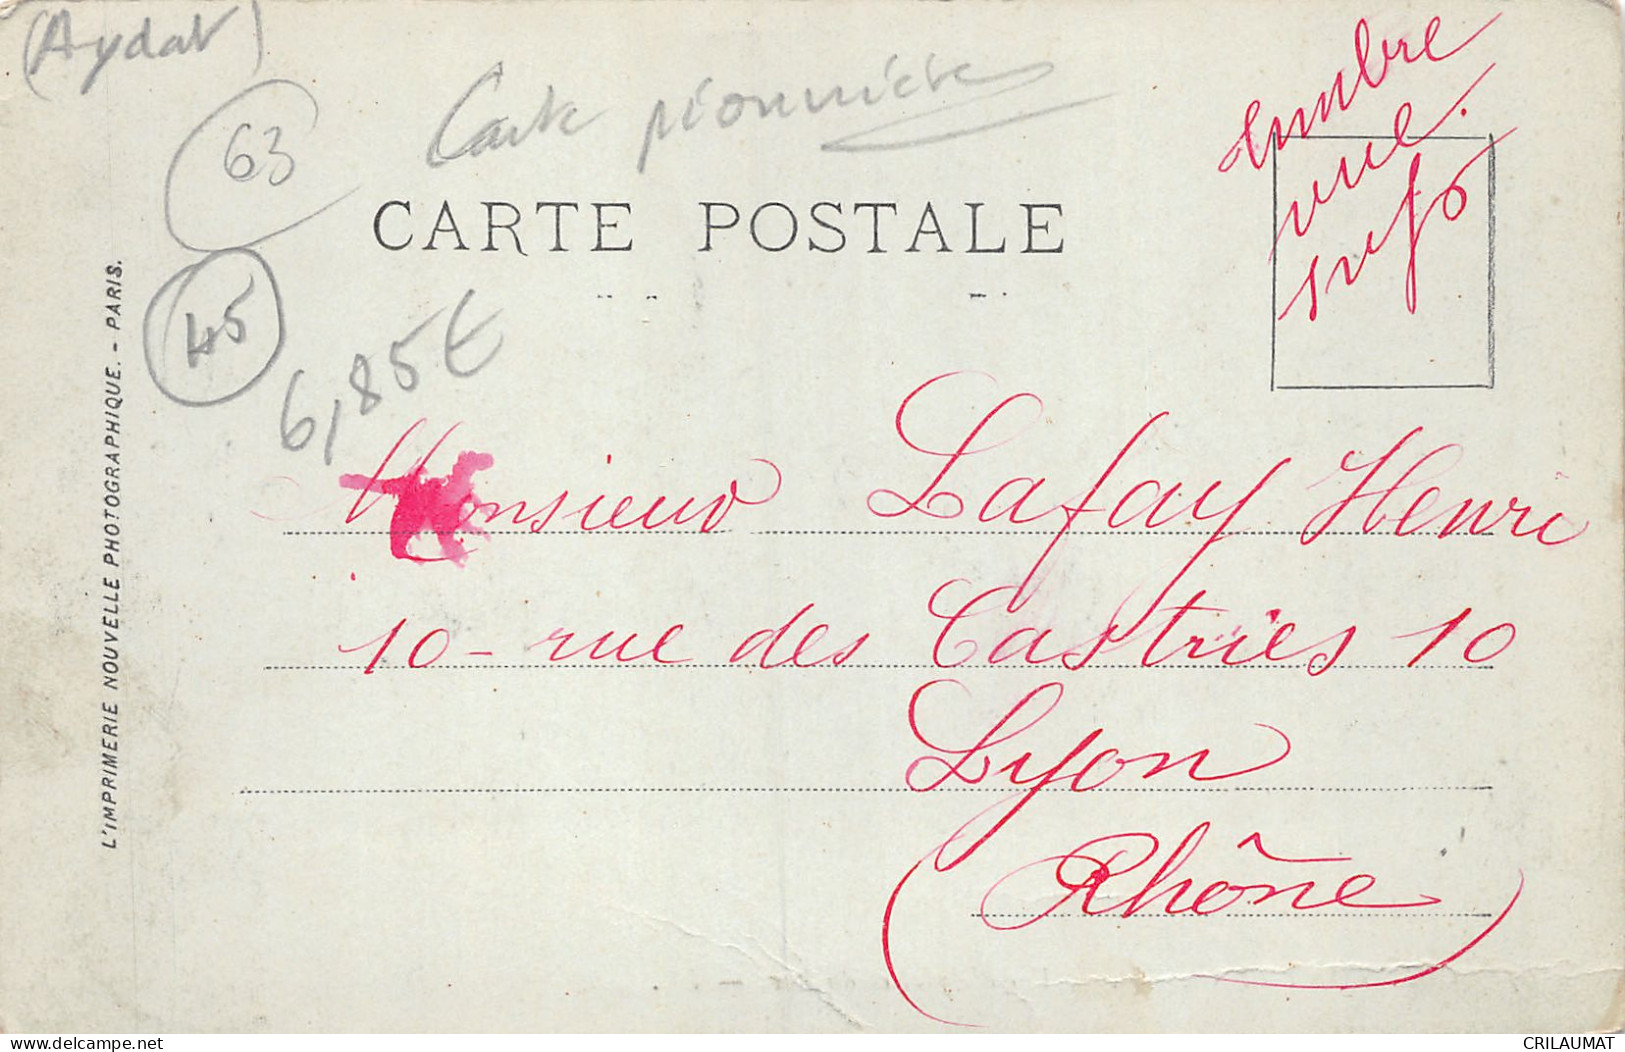 (Aydat)
63
Carte pionnière
timbre
vue.
CARTE POSTALE
45
6,85€
L'IMPRIMERIE NOUVELLE PHOTOGRAPHIQUE. - PARIS.
Monsieur Lafay Henri
10 - rue des Castries 10
Lyon
(Rhône)
www.delcampe.net
CRILAUMAT